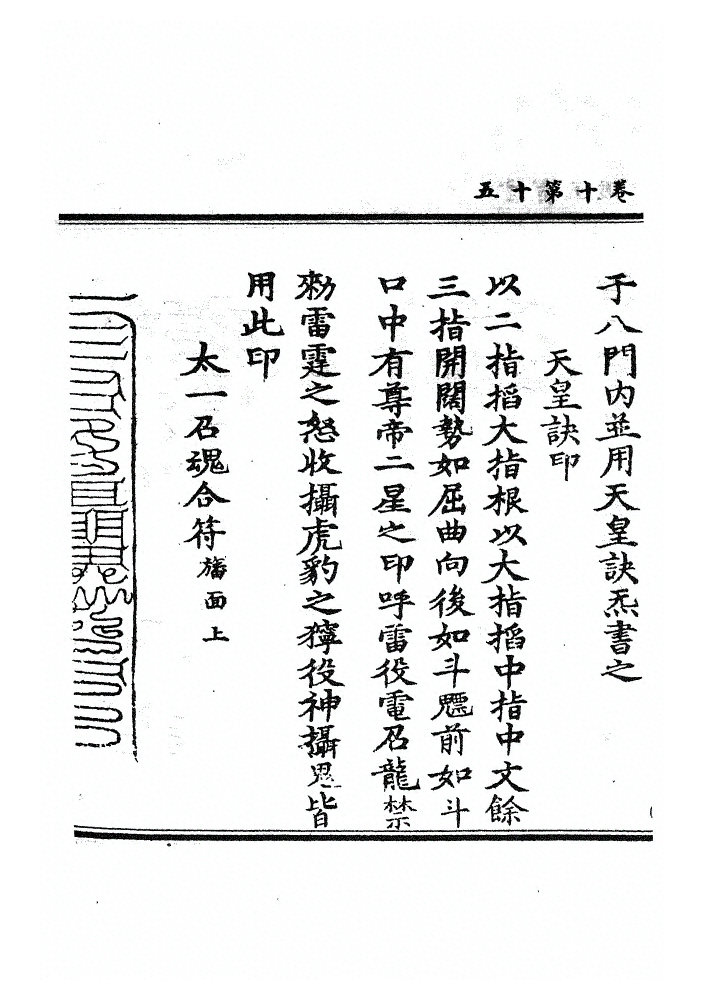 卷十第十五
于八門内並用天皇訣炁書之
天皇訣印
以二指搯大指根以大指搯中指中文餘
三指開闊勢如屈曲向後如斗魒前如斗
口中有尊帝二星之印呼雷役電召龍禁
勑雷霆之怒收攝虎豹之獰役神攝鬼皆
用此印
太一召魂合符旛面上